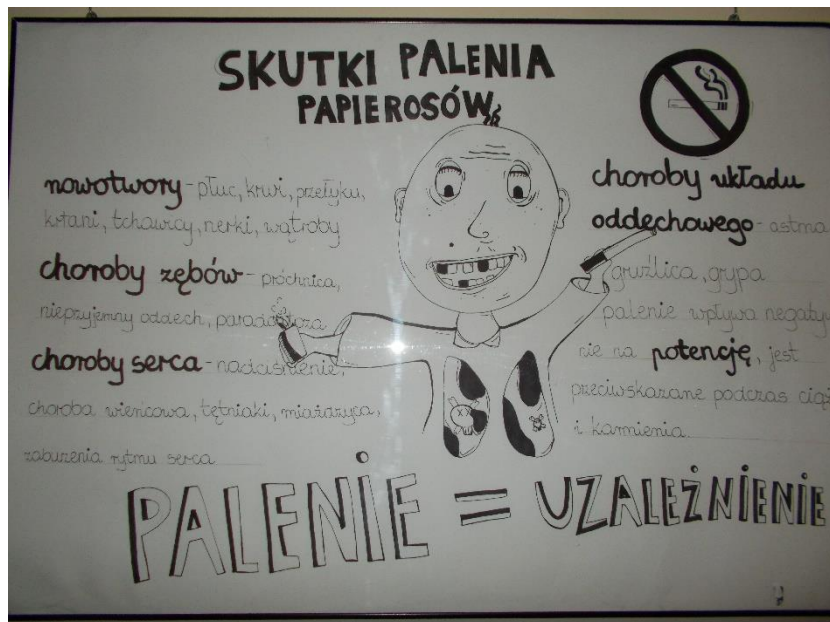 SKUTKI PALENIA
PAPIEROSÓW
nowotwory - płuc, krwi, przełyku,
krtani, tchawicy, nerki, wątroby
choroby zębów - próchnica,
nieprzyjemny oddech, paradontoza
choroby serca - nadciśnienie,
choroba wieńcowa, tętniaki, miażdżyca,
zaburzenia rytmu serca
choroby układu
oddechowego - astma
gruźlica, grypa
palenie wpływa negatyw
nie na potencję, jest
przeciwskazane podczas ciąż
i karmienia.
PALENIE = UZALEŻNIENIE